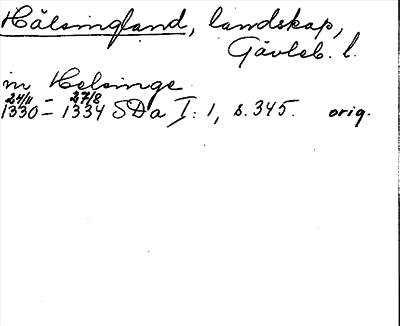 Hälsingland, landskap,
Gävleb. l.
in Helsinge
24/11 – 27/8
1330 – 1334 SDa I: 1, s. 345. orig.